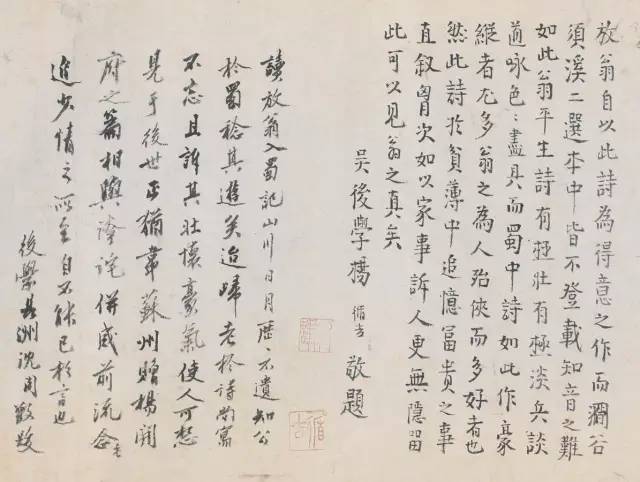 放翁自以此詩為得意之作而澗谷
須溪二選本中皆不登載知音之難
如此翁平生詩有極壯有極淡兵談
道咏色〻盡具而蜀中詩如此作豪
縱者尤多翁之為人殆俠而多好者也
然此詩於貧薄中追憶富貴之事
直叙胷次如以家事訴人更無隱留
此可以見翁之真矣
吳後學楊循吉敬題
讀放翁入蜀記山川日月歷〻不遺知公
於蜀稔其進矣迨歸老於詩尚寓
不忘且訴其壯懷豪氣使人可想
見于後世正猶韋蘇州贈楊開
府之篇相與誇詫併感前流念老
追少情之所至自不能已於言也
後學長洲沈周敬跋